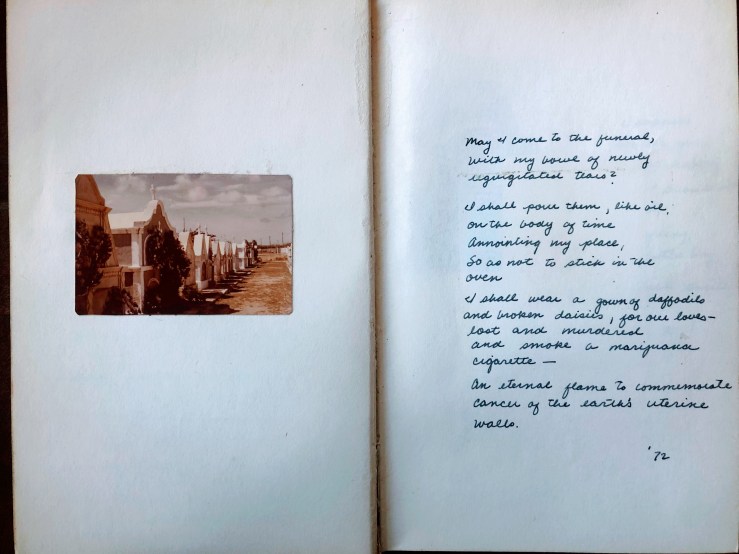 May I come to the funeral,
with my bowl of newly
regurgitated tears?
I shall pour them, like oil,
on the body of time
Annointing my place,
So as not to stick in the
oven
I shall wear a gown of daffodils
and broken daisies, for our loves—
lost and murdered
and smoke a marijuana
cigarette —
An eternal flame to commemorate
cancer of the earth's uterine
walls.
'72